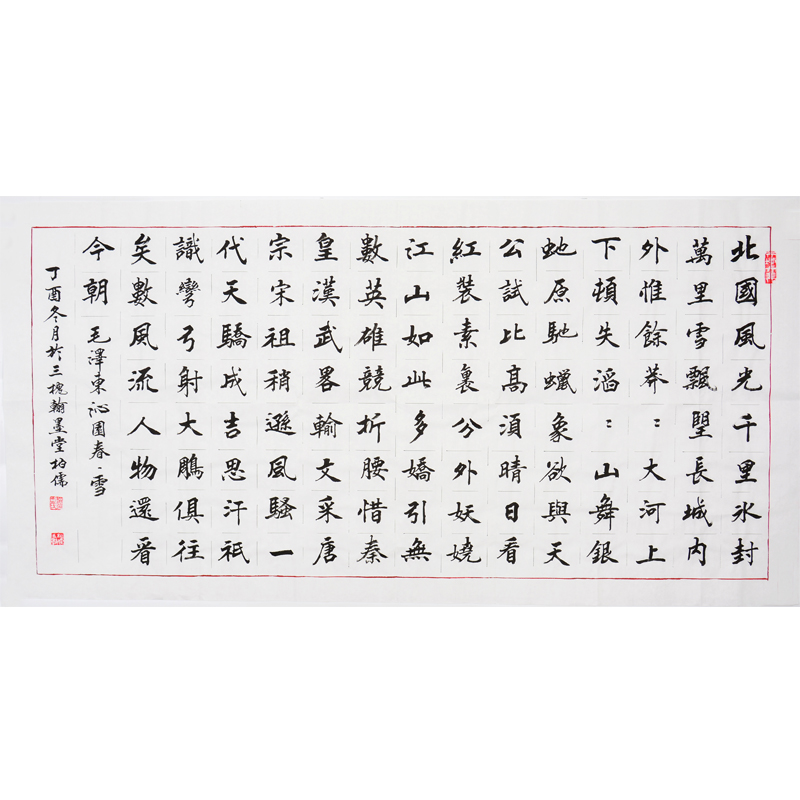 北國風光千里冰封
萬里雪飄朢長城內
外惟餘莽：大河上
下頓失滔：山舞銀
虵原馳蠟象欲與天
公試比高須晴日看
紅裝素裹分外妖嬈
江山如此多嬌引無
數英雄競折腰惜秦
皇漢武畧輸文采唐
宗宋祖稍遜風騷一
代天驕成吉思汗祇
識彎弓射大鵰俱往
矣數風流人物還看
今朝 毛澤東沁園春·雪
丁酉冬月於三槐翰墨堂